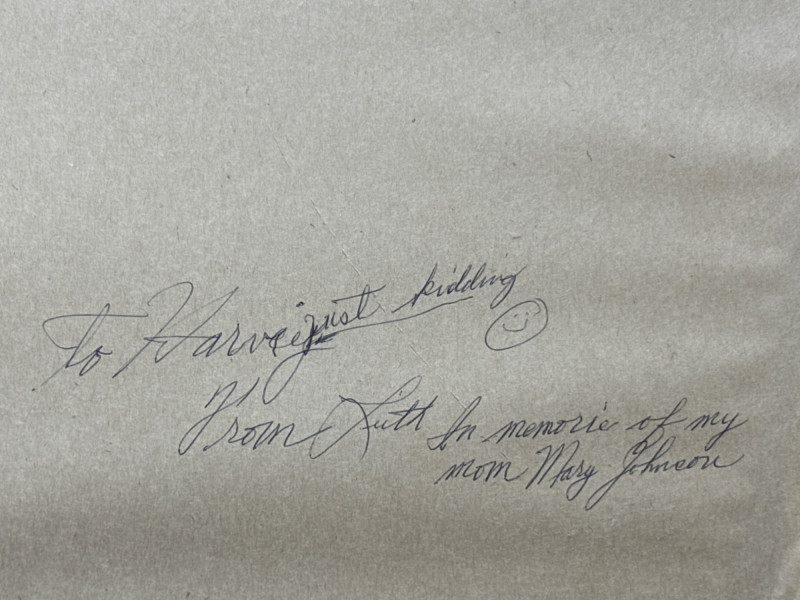 To Harvey just kidding
From Ruth
In memorie of my
mom Mary Johnson